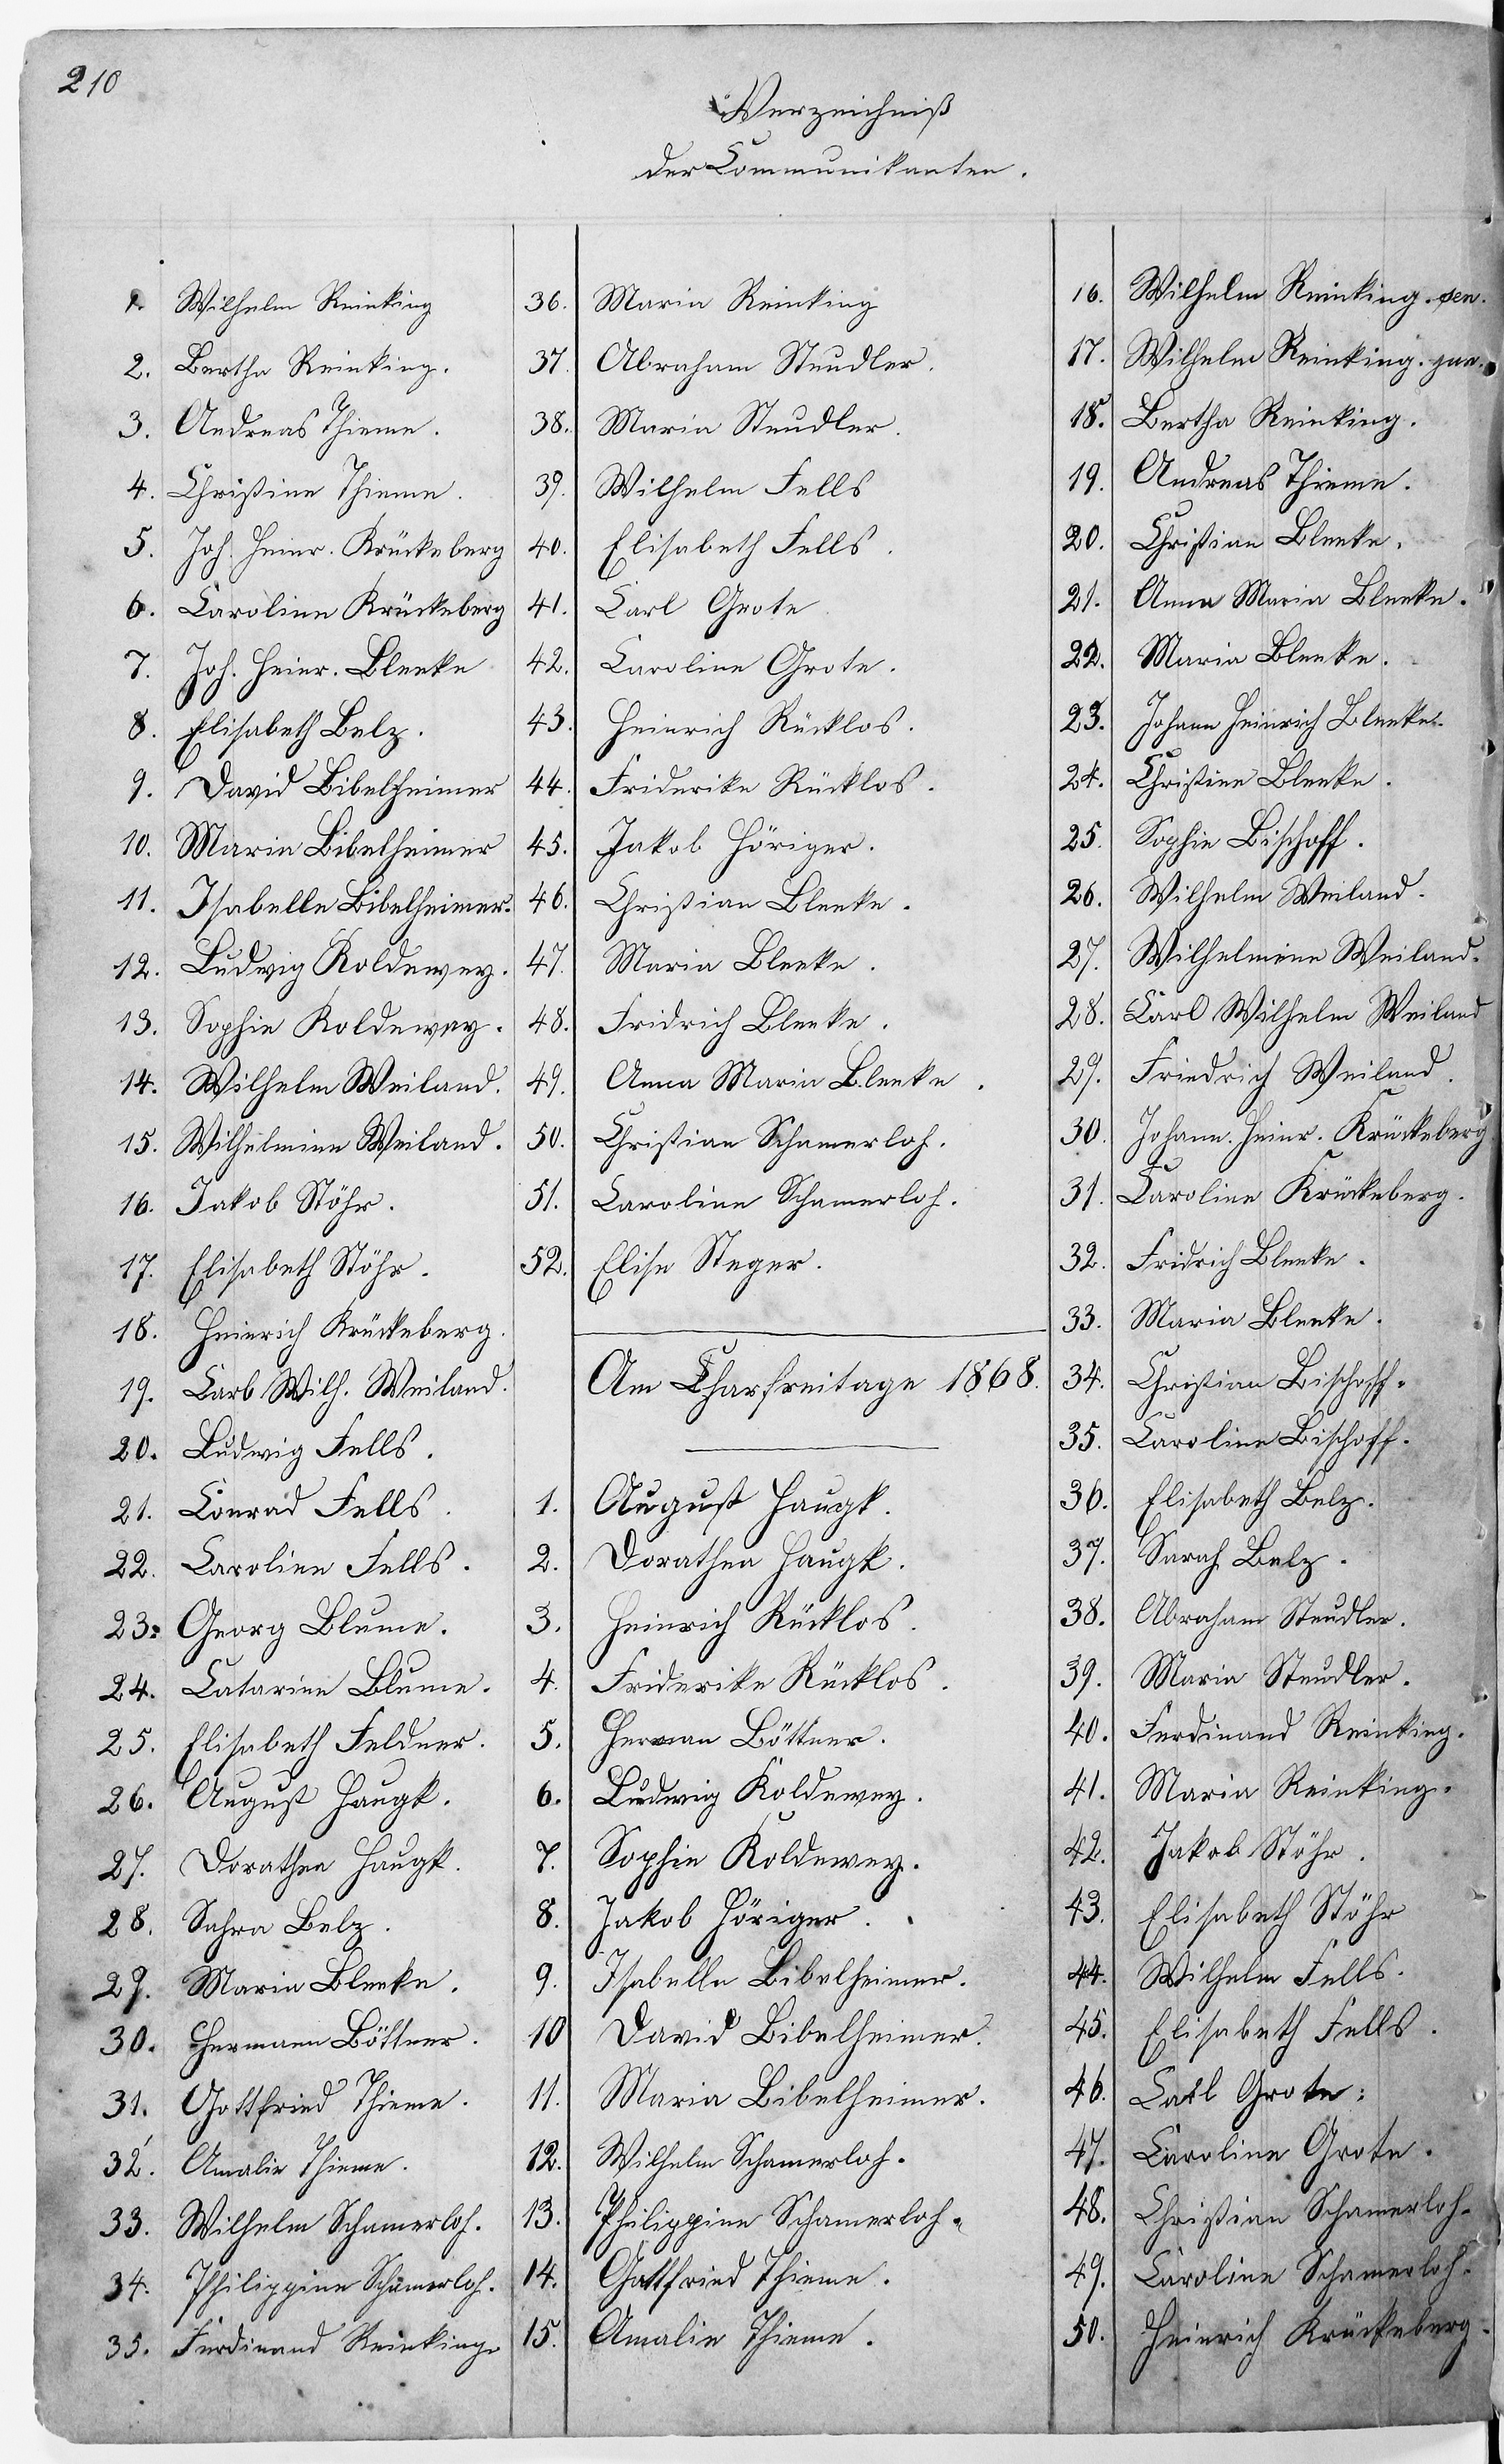 210
Verzeichniß
der Communikanten.
1. Wilhelm Reinking
2. Bertha Reinking.
3. Andreas Thieme.
4. Christine Thieme.
5. Joh. Heinr. Krückeberg
6. Caroline Krückeberg
7. Joh. Heinr. Bleeke
8. Elisabeth Belz.
9. David Bibelheimer
10. Maria Bibelheimer
11. Isabelle Bibelheimer.
12. Ludwig Koldewey.
13. Sophie Koldewey.
14. Wilhelm Weiland.
15. Wilhelmine Weiland.
16. Jakob Stöhr.
17. Elisabeth Stöhr.
18. Heinrich Krückeberg.
19. Carl Wilh. Weiland.
20. Ludwig Fells.
21. Conrad Fells.
22. Caroline Fells.
23. Georg Blume.
24. Catarine Blume.
25. Elisabeth Feldner.
26. August Haugk.
27. Dorathea Haugk.
28. Sahra Belz.
29. Maria Bleeke.
30. Hermann Böttner.
31. Gottfried Thieme.
32. Amalie Thieme.
33. Wilhelm Schamerloh.
34. Philippine Schamerloh.
35. Ferdinand Reinking.
36. Maria Reinking
37. Abraham Steudler.
38. Maria Steudler.
39. Wilhelm Fells
40. Elisabeth Fells.
41. Carl Grote
42. Caroline Grote.
43. Heinrich Rücklos.
44. Friderike Rücklos.
45. Jakob Höriger.
46. Christian Bleeke.
47. Maria Bleeke.
48. Fridrich Bleeke.
49. Anna Maria Bleeke.
50. Christian Schamerloh.
51. Caroline Schamerloh.
52. Elise Steger.
Am Charfreitage 1868.
1. August Haugk.
2. Dorathea Haugk.
3. Heinrich Rücklos.
4. Friderike Rücklos.
5. Herman Böttner.
6. Ludwig Koldewey.
7. Sophie Koldewey.
8. Jakob Höriger.
9. Isabella Bibelheimer.
10 David Bibelheimer.
11. Maria Bibelheimer.
12. Wilhelm Schamerloh.
13. Philippine Schamerloh.
14. Gottfried Thieme.
15. Amalie Thieme.
16. Wilhelm Reinking. sen.
17. Wilhelm Reinking. jun.
18. Bertha Reinking.
19. Andreas Thieme.
20. Christian Bleeke.
21. Anna Maria Bleeke.
22. Maria Bleeke.
23. Johann Heinrich Bleeke.
24. Christine Bleeke.
25. Sophie Bischoff.
26. Wilhelm Weiland.
27. Wilhelmine Weiland.
28. Carl Wilhelm Weiland
29. Friedrich Weiland.
30. Johann. Heinr. Krückeberg
31. Caroline Krückeberg.
32. Fridrich Bleeke.
33. Maria Bleeke.
34. Christian Bischoff.
35. Caroline Bischoff.
36. Elisabeth Belz.
37. Sarah Belz.
38. Abraham Steudler.
39. Maria Steudler.
40. Ferdinand Reinking.
41. Maria Reinking.
42. Jakob Stöhr.
43. Elisabeth Stöhr
44. Wilhelm Fells.
45. Elisabeth Fells.
46. Carl Grote.
47. Caroline Grote.
48. Christian Schamerloh.
49. Caroline Schamerloh.
50. Heinrich Krückeberg.